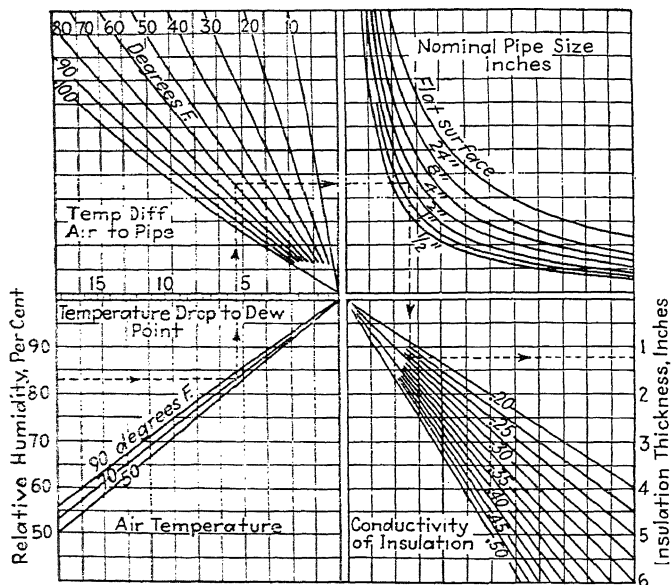 80 70 60 50 40 30 20 10
90
100
Degrees F.
Temp Diff,
Air to Pipe
15 10 5
Nominal Pipe Size
inches
Flat surface
24"
8"
4"
2"
1/2"
Temperature Drop to Dew
Point
Relative Humidity, Per Cent
90
80
70
60
50
90 degrees F.
70
50
Air Temperature
Conductivity
of Insulation
.20
.25
.30
.35
.40
.45
.50
Insulation Thickness, Inches
1
2
3
4
5
6